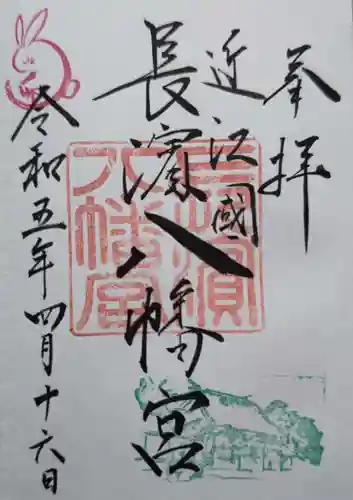 奉拝
近江國
長濱八幡宮
令和五年四月十六日
長濱
八幡宮